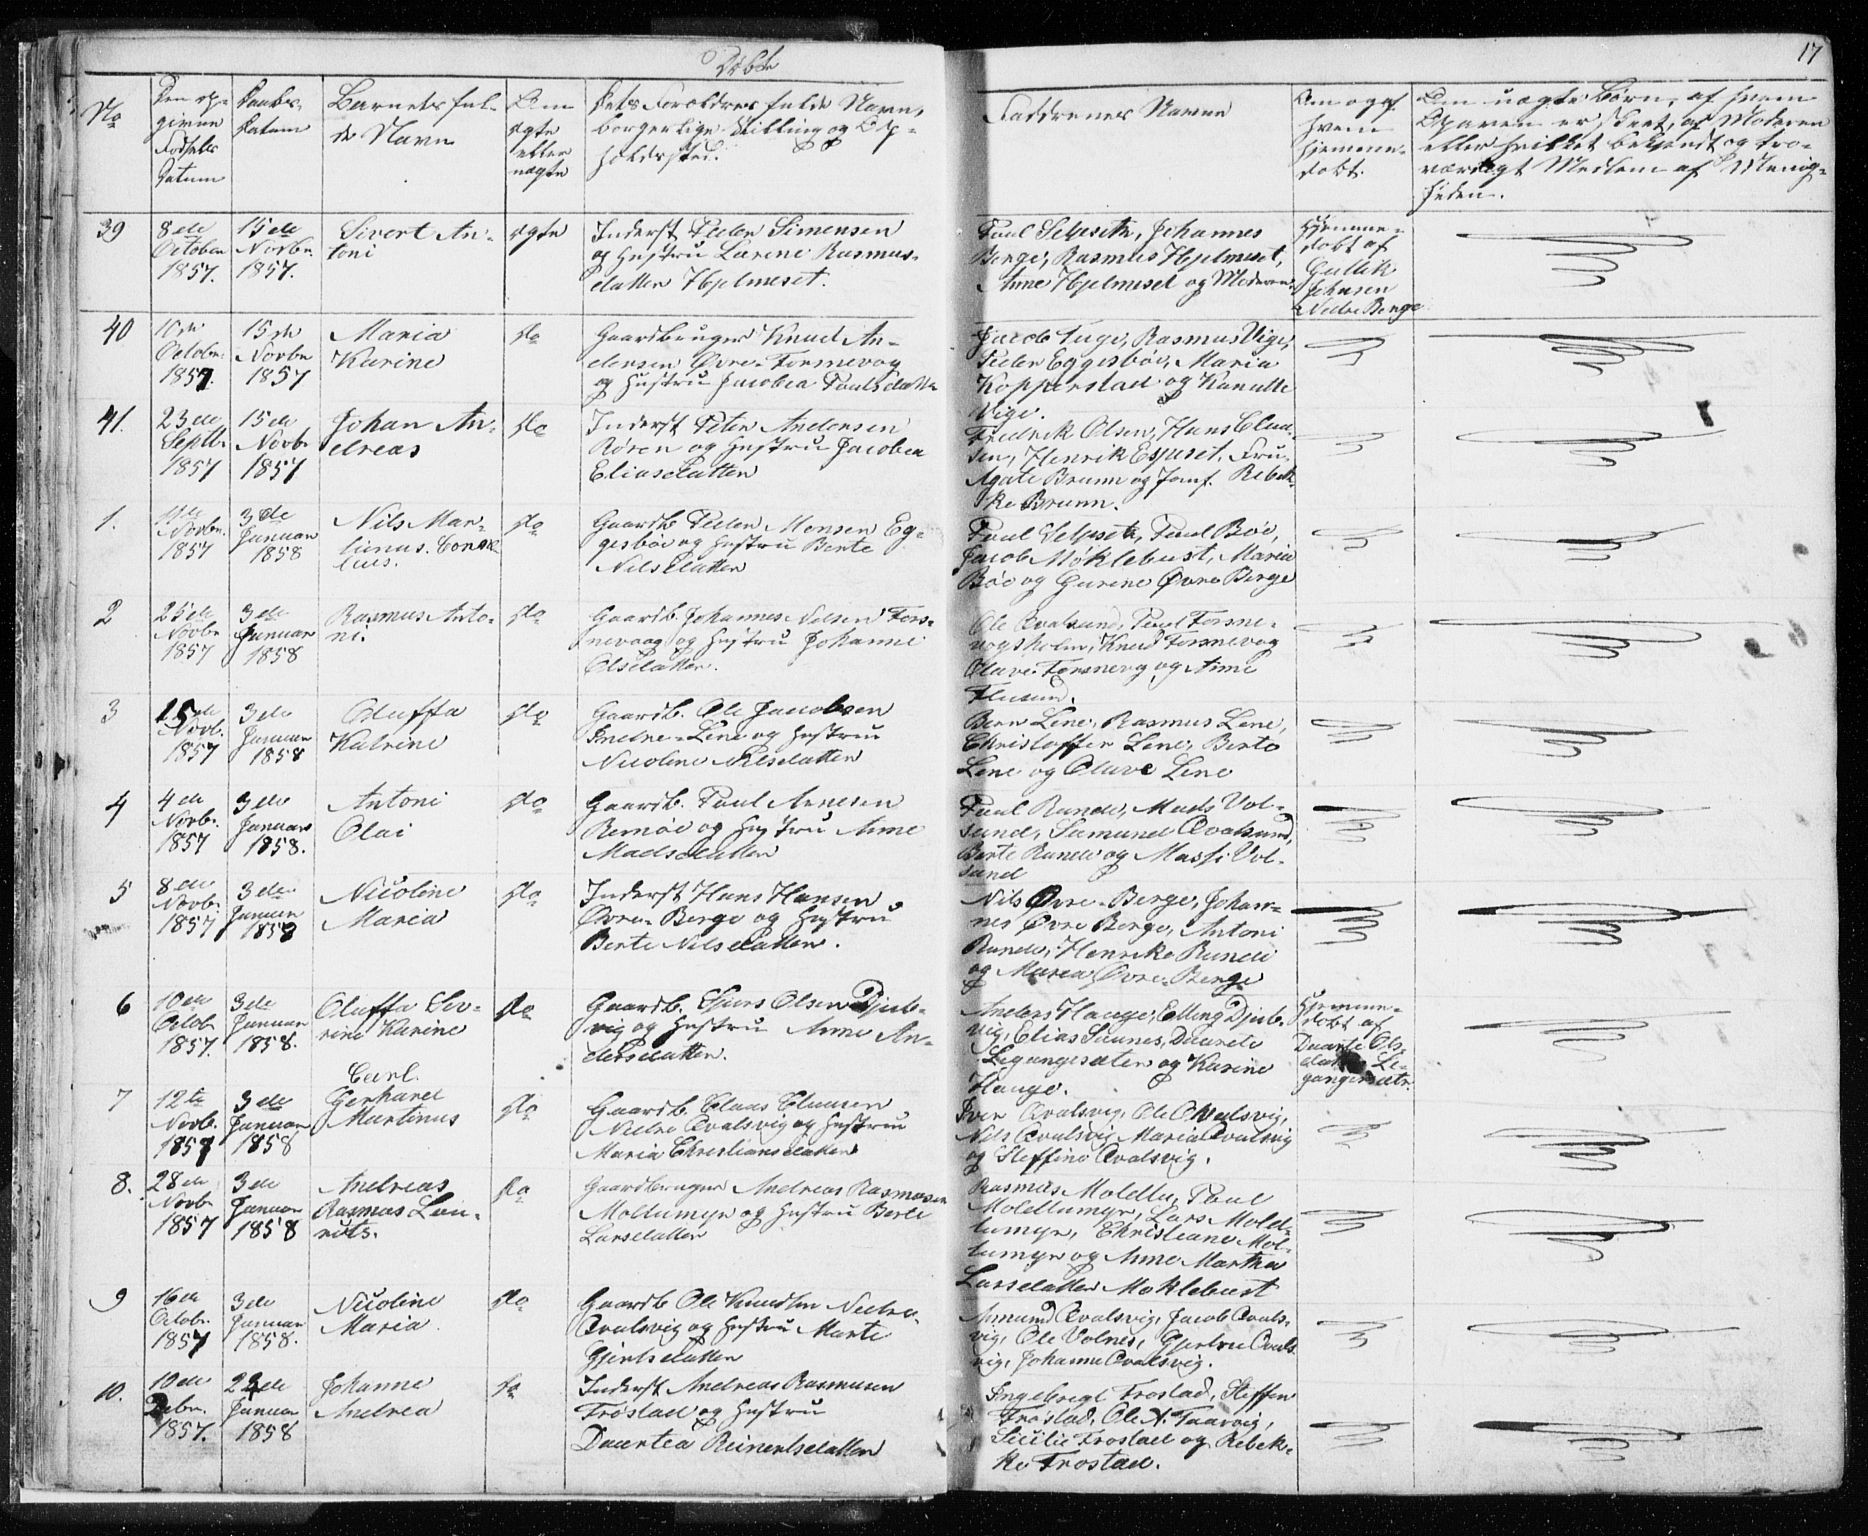 Døbte
17
No
Den op-
givne
Fødsels
Datum
Daabs
Datum
Barnets ful-
de Navn
Om
ægte
eller
uægte
Dets Forældres fulde Navn,
borgerlige Stilling og Op-
holdssted.
Faddrenes Navne
Om og af
hvem
hjemme-
døbt.
Om uægte Børn, af hvem
Opgaven er skeet, af Moderen
eller hvilket bekjendt og tro-
værdigt Medlem af Menig-
heden.
39
8de
October
1857.
15de
Novbr.
1857.
Sivert An-
toni
ægte
Inderst Peder Simensen
og Hustru Larine Rasmus-
datter Hjelmeset.
Paul Selpsete, Johannes
Berge, Rasmus Hjelmeset,
Anne Hjelmeset og Moderen
Hjemme-
døbt af
Gullik
Johnsen
Nedre Berge
40
10de
Octobr.
1857.
15de
Novbr
1857
Maria
Karine
do
Gaardbruger Knud An-
dersen Øvre-
og Hustru Jacobea Paulsdatter
Jacob Tuge, Rasmus Vige,
Peder Eggesbøe, Maria
Kopperstad og Kanutte
Vige.
41.
23de
Septbr.
1857
15de
Novbr
1857
Johan An-
dreas
do
Inderst Peter Andersen
Røren og Hustru Jacobea
Eliasdatter
Fredrik Olsen, Hans Clau-
sen, Henrik Espeset, Fru
Agate Brunn og Jomf. Rebek-
ke Brunn.
1.
Novbr.
1857
3de
Januar
1858
Nils Mar-
tinus Corne-
lius.
do
Gaardb. Peder Monsen Eg-
gesbøe og Hustru Berte
Nilsdatter
Paul Selpsete, Paul Bøe,
Jacob Møklebust, Maria
Bøe og Gurine Øvre Berge
2
25de
Novbr
1857
3de
Januar
1858
Rasmus Anto-
ni.
do
Gaardb. Johannes Nilsen Fors-
nevaag og Hustru Johanne
Olsdatter.
Ole Qvalsund, Paul Fosne-
vogsholm, Knud Fosnevog
Olave Fosnevog og Anne
Flusund.
3
15de
Novb.
1857
3de
Januar
1858
Oluffa
Katrine
do
Gaardb. Ole Jacobsen
Indre-Lene og Hustru
Nicoline Nilsdatter
Bern Lene, Rasmus Lene,
Christoffer Lene, Berte
Lene og Olave Lene
4
4de
Novbr.
1857
3de
Januar
1858.
Antoni
Olai
do
Gaardb. Paul Arnesen
Remøe og Hustru Anne
Madsdatter
Paul Runde, Mads Vol-
sund, Samuel Qvalsund,
Berte Runde og Massi Vol-
sund
5
8de
Novbr.
1857
3de
Januar
1858
Nicoline
Maria
do
Inderst Hans Hansen
Øvre-Berge og Hustru
Berte Nilsdatter.
Nils Øvre-Berge, Johan-
nes Øvre Berge, Antoni
Runde, Henrike Runde
og Maria Øvre-Berge
6
10de
Octob
1857.
3de
Januar
1858.
Oluffa Sev-
rine Karine
do
Gaardb. Sjurs Olsen Djub-
vig og Hustru Anne An-
dersdatter.
Anders Hauge, Elling Djub-
vig, Elias Saunes, Daarete
Leganger­sæter og Karine
Hauge.
Hjemme-
døbt af
Daarte Ols-
datter Le-
gangersætr.
7
12te
Novb.
1857
3de
Januar
1858
Carl
Gerhard
Martinus
do
Gaardb. Claus Clausen
Nedre Qvalsvig og Hustru
Maria Christiansdatter
Iver Qvalsvig, Ole Qvalsvig,
Nils Qvalsvig, Maria Qvalsvig
og Steffine Qvalsvig.
8.
28de
Novbr
1857
3de
Januar
1858
Andreas
Rasmus Lau-
rits.
do
Gaardbruger Andreas Rasmusen
Moltumyr og Hustru Berte
Larsdatter
Rasmus Moldtu, Paul
Moldtumyr, Lars Mold-
tumyr, Christiane Mol-
tumyr og Anne Martha
Larsdatter Moklebust
9
16de
Octobr.
1857
3de
Januar
1858.
Nicoline
Maria.
do
Gaardb Ole Knudsen Nedre-
Qvalsvig og Hustru Marte
Gjertsdatter
Amund Qvalsvig, Jacob Qvals-
vig, Ole Volnes, Gjertru Qvals
vig, Johanne Qvalsvig.
10.
10de
Debr.
1857.
24de
Januar
1858
Johanne
Andrea
do
Inderst Andreas Rasmusen
Frøstad og Hustru
Daartea Reinertsdatter
Ingebrigt Frostad, Steffen
Frøstad, Ole A. Taarvig,
Sicilie Frostad og Rebek-
ke Frøstad.